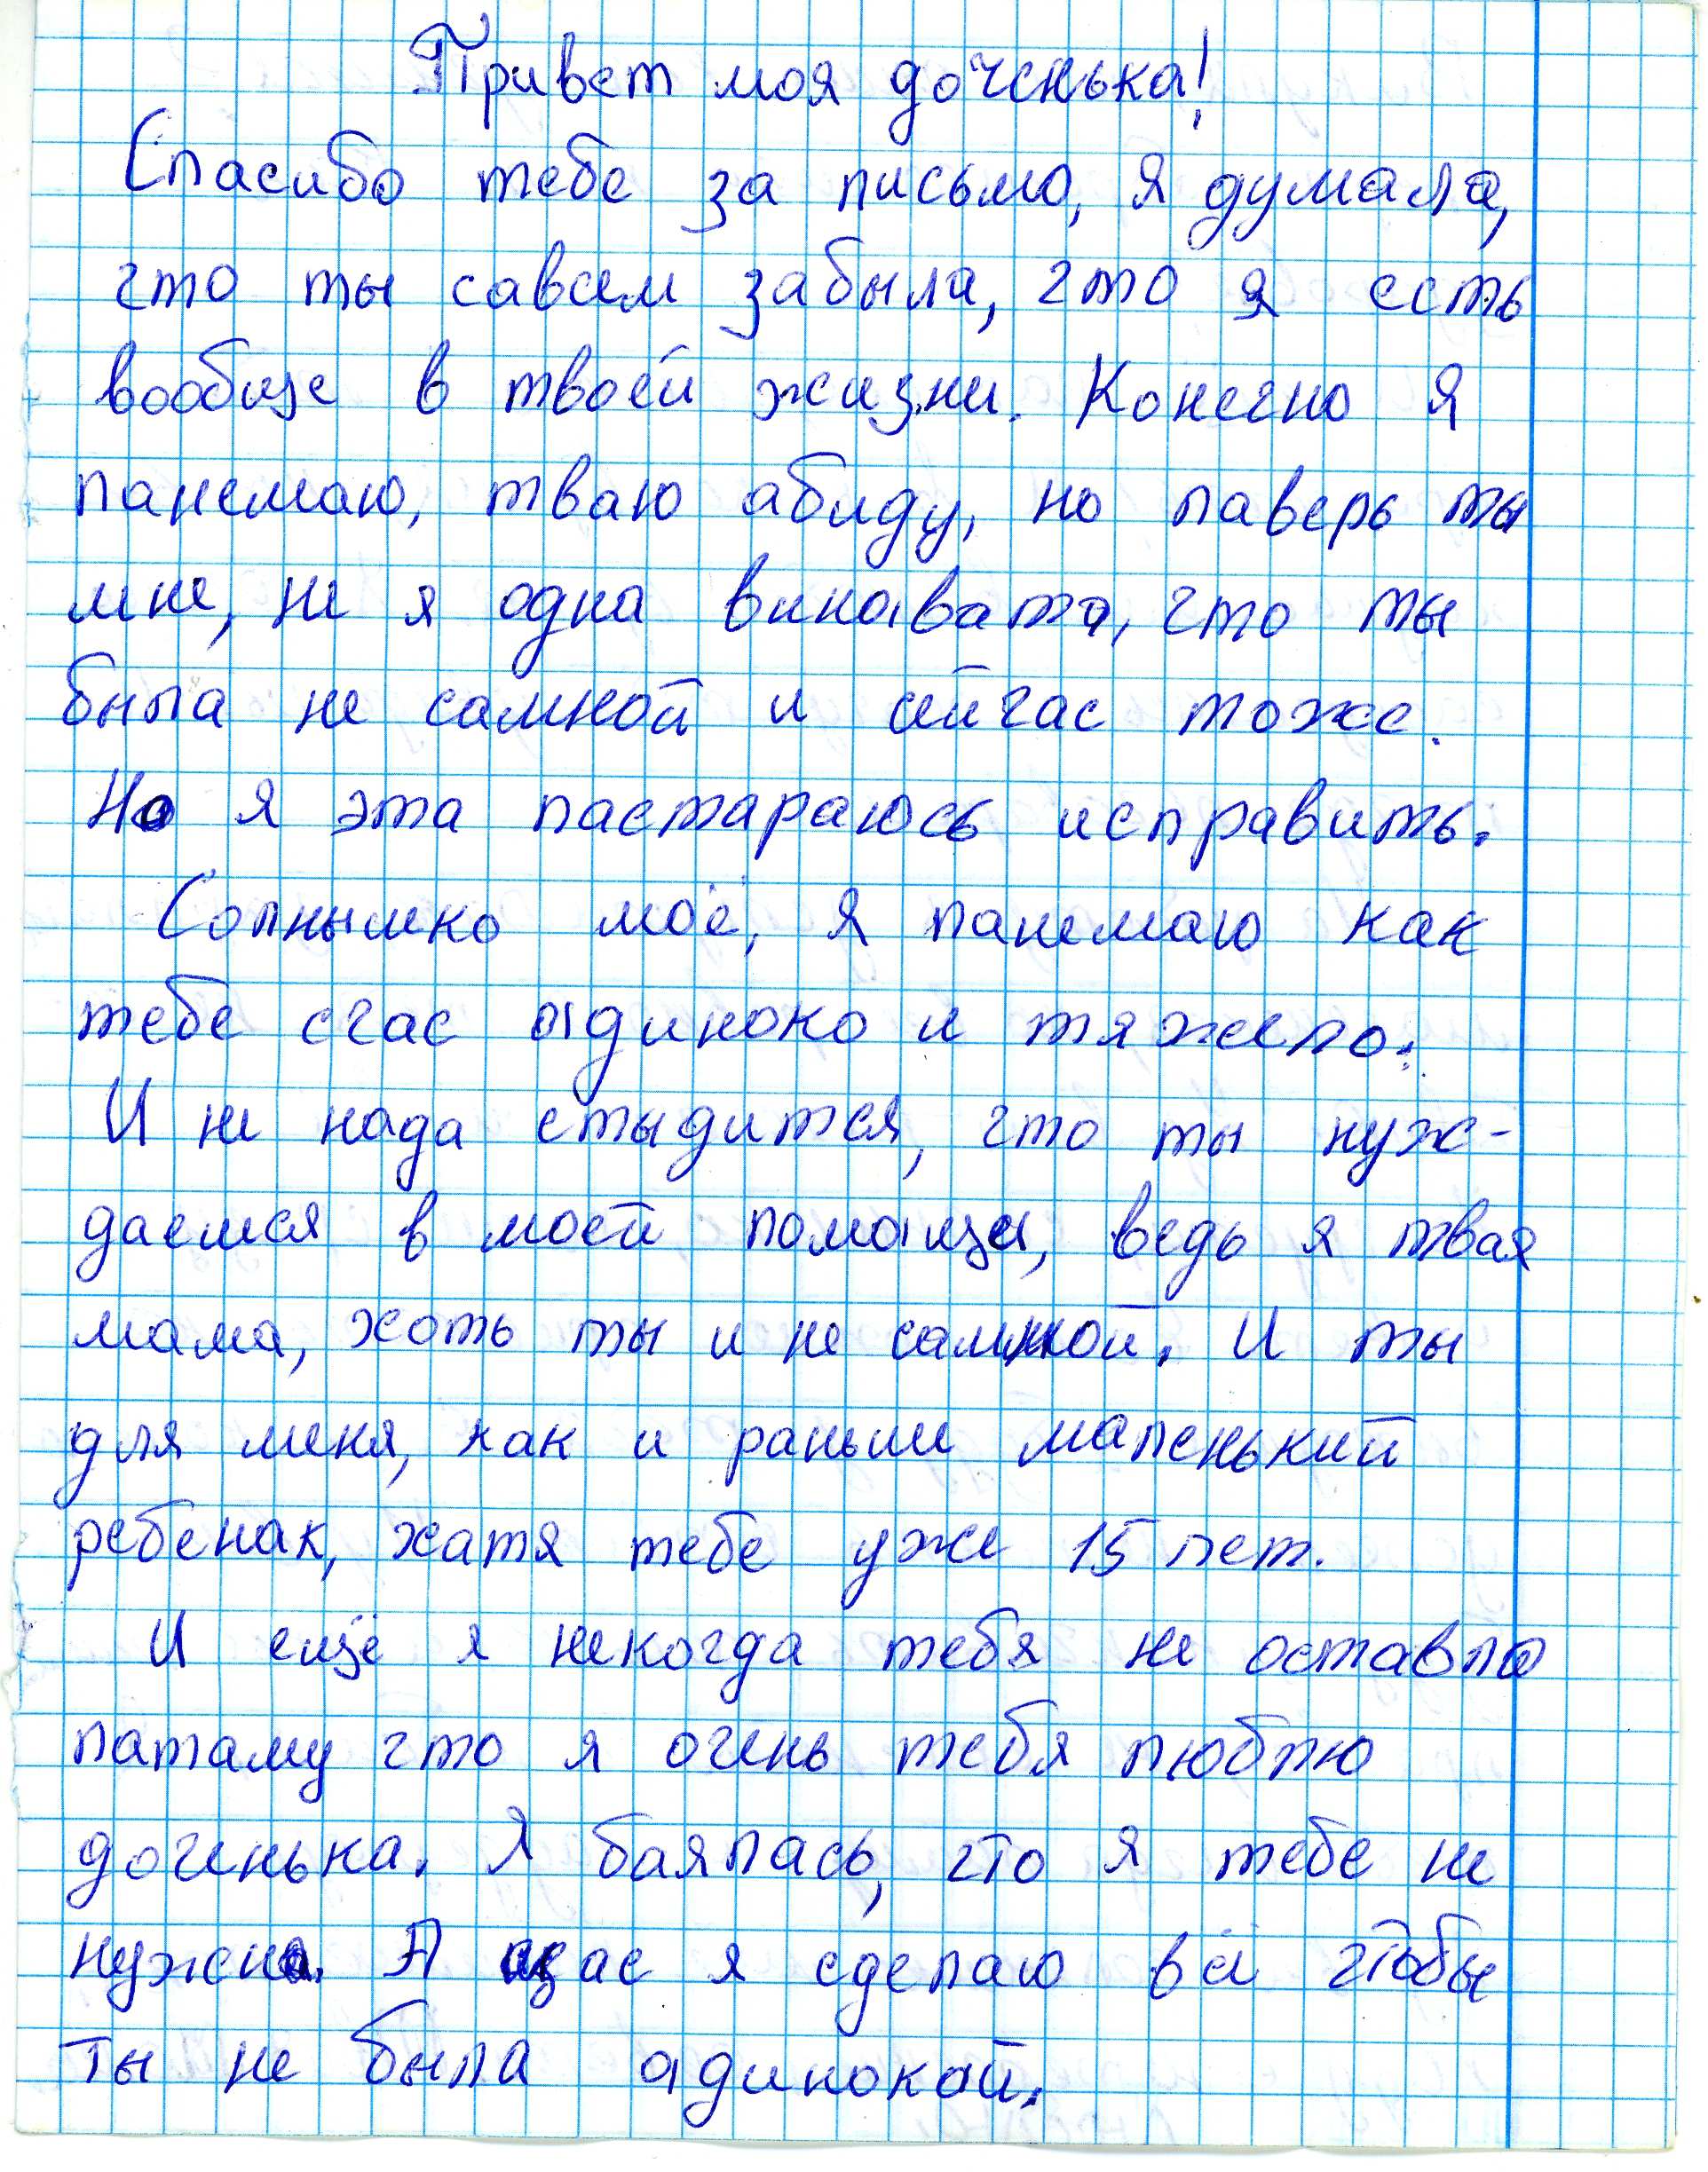 Привет моя доченька!
Спасибо тебе за письмо, я думала,
что ты савсем забыла, что я есть
вообще в твоей жизни. Конечно я
панемаю, тваю абиду, но паверь ты
мне, не я одна винавата, что ты
была не самной и сейчас тоже.
Но я эта пастараюсь исправить.
Солнышко моё, я панемаю как
тебе счас адиноко и тяжело.
И не нада стыдится, что ты нуж-
даешся в моей помащи, ведь я твая
мама, хоть ты и не самной. И ты
для меня, как и раньше маленький
ребенак, хатя тебе уже 15 лет.
И ещё я некогда тебя не оставлю
патаму что я очень тебя люблю
доченька. Я баялась, что я тебе не
нужна. А щас я сделаю всё чтобы
ты не была адинокай.